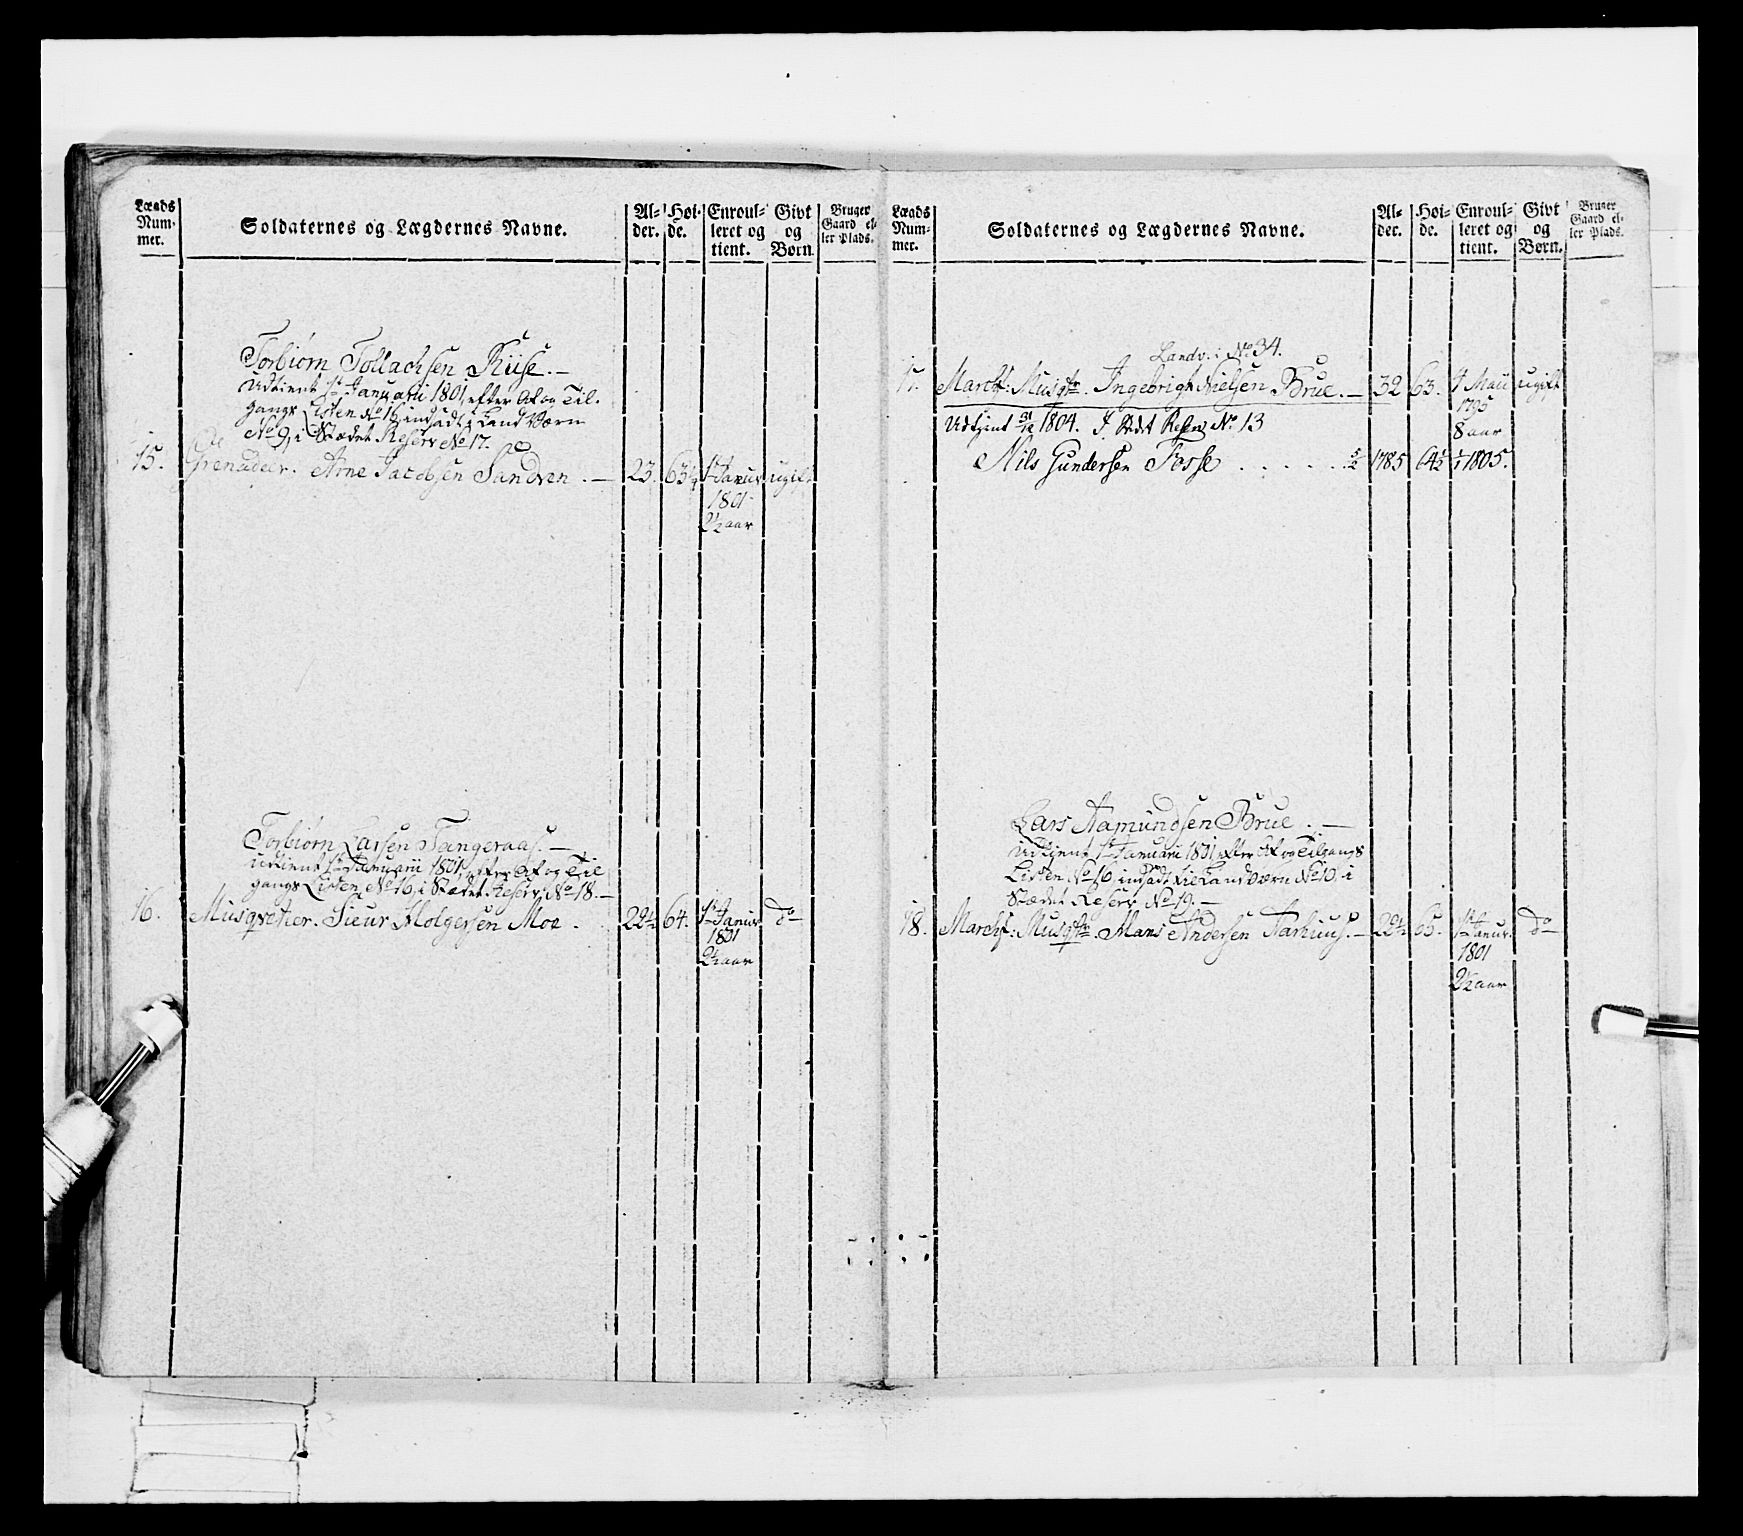 Lægds Nummer.
Soldaternes og Lægdernes Navne.
Alder.
Høide.
Enroulleret og tient.
Givt og Børn
Bruger Gaard eller Plads.
Torbiørn Tollachsen Riise. —
udtient 1ste Januarii 1801, efter Af og Til-
gangs Listen No 16, indsadt i Land Værn
No 9, i Stædet Reserv No 17.
15. Grenadeer. Arne Jacobsen Sandven . — 23. 63½ 1ste Januar ugift
1801
2½ aar
Torbiørn Larsen Tangeraas. —
udtient 1ste Januarii 1801, efter Af og Til
gangs Listen No 16, i Stædet Reserv No 18. —
16. Musqveteer. Sieur Holgersen Moe . 22½ 64. 1ste Januar do
1801
2½ aar
Lægds Nummer.
Soldaternes og Lægdernes Navne.
Alder.
Høide.
Enroulleret og tient.
Givt og Børn.
Bruger Gaard eller Plads.
Landv. i No 34.
17. March: Musqtr. Ingebrigt Nielsen Brue. — 32 63. 4 Maii ugift
1795
8 aar
Udtient 31/12 1804. I Stedet Reserv No 13
Nils Gundersen Fosse . . . . . . 5/2 1785 64½ 1/1 1805.
Lars Aamundsen Brue . —
udtient 1ste Januarii 1801, efter Af og Tilgangs
Listen No 16, indsadt til Land Værn No 10, i
Stædet Reserv No 19. —
18. March: Musqtr. Mans Andersen Aarhuus. — 22½ 65. 1ste Januar. do
1801
2½ aar